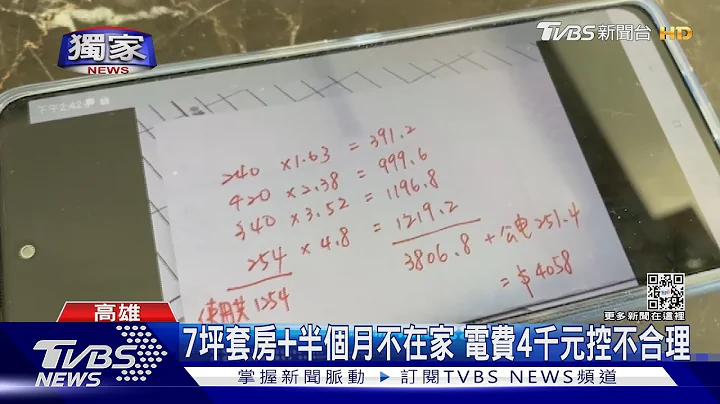 獨家
NEWS
TVBS新聞台 HD
下午2:42
240 ×1.63 = 391.2
420 ×2.38 = 999.6
340 ×3.52 = 1196.8
254 ×4.8 = 1219.2
3806.8 +公电251.4
使用共1254
=$4058
更多新聞在這裡
高雄
7坪套房+半個月不在家 電費4千元控不合理
TVBS
NEWS
掌握新聞脈動 ▶ 訂閱TVBS NEWS頻道